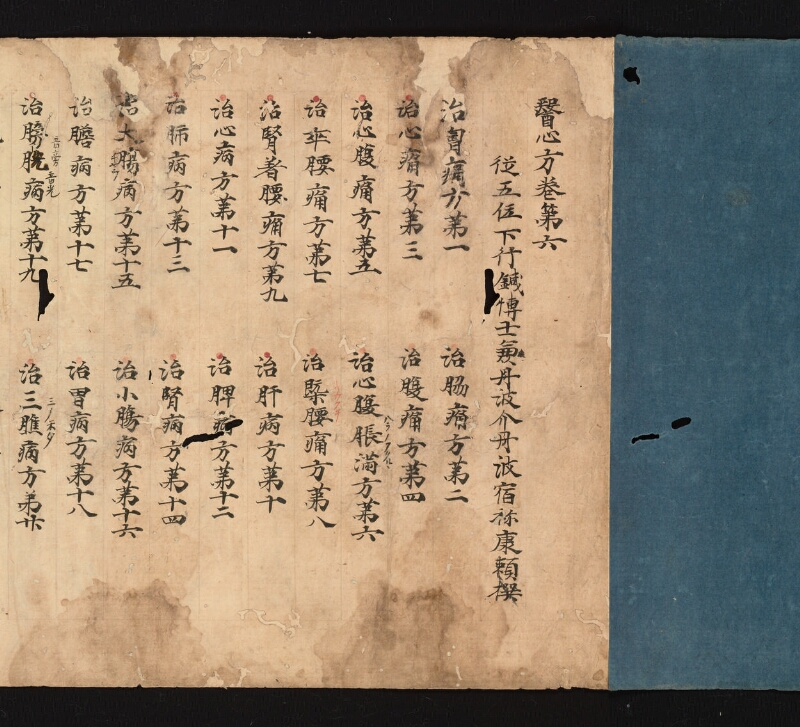 醫心方卷第六
従五位下行鍼博士兼丹波介丹波宿祢康頼撰
治胷痛方第一 治脇痛方第二
治心痛方第三 治腹痛方第四
治心腹痛方第五 治心腹脹滿方第六
治卒腰痛方第七 治𦡀腰痛方第八
治腎著腰痛方第九 治肝病方第十
治心病方第十一 治脾病方第十二
治肺病方第十三 治腎病方第十四
治大腸病方第十五 治小腸病方第十六
治膽病方第十七 治胃病方第十八
治膀胱病方第十九 治三膲病方第廿
音旁 音光